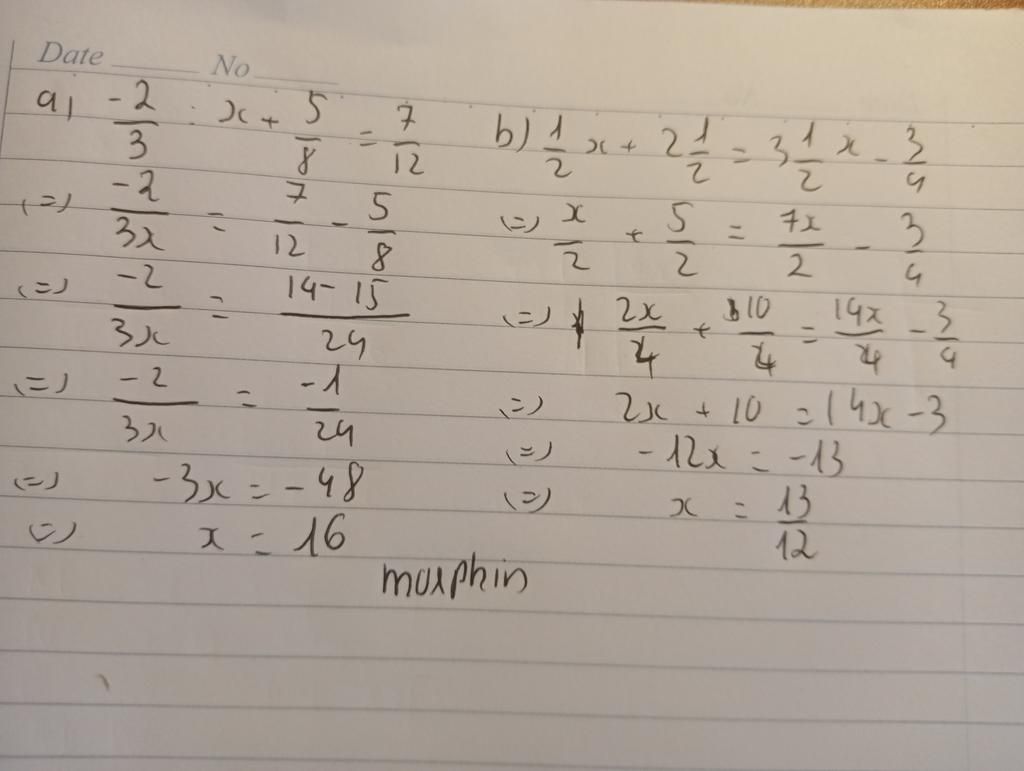 Date No
a) -2/3 : x + 5/8 = 7/12
(=) -2/3x = 7/12 - 5/8
(=) -2/3x = 14-15/24
(=) -2/3x = -1/24
(=) -3x = -48
(=) x = 16
b) 1/2 x + 2 1/2 = 3 1/2 x - 3/4
(=) x/2 + 5/2 = 7x/2 - 3/4
(=) 2x/4 + 10/4 = 14x/4 - 3/4
(=) 2x + 10 = 14x - 3
(=) -12x = -13
(=) x = 13/12
morphin